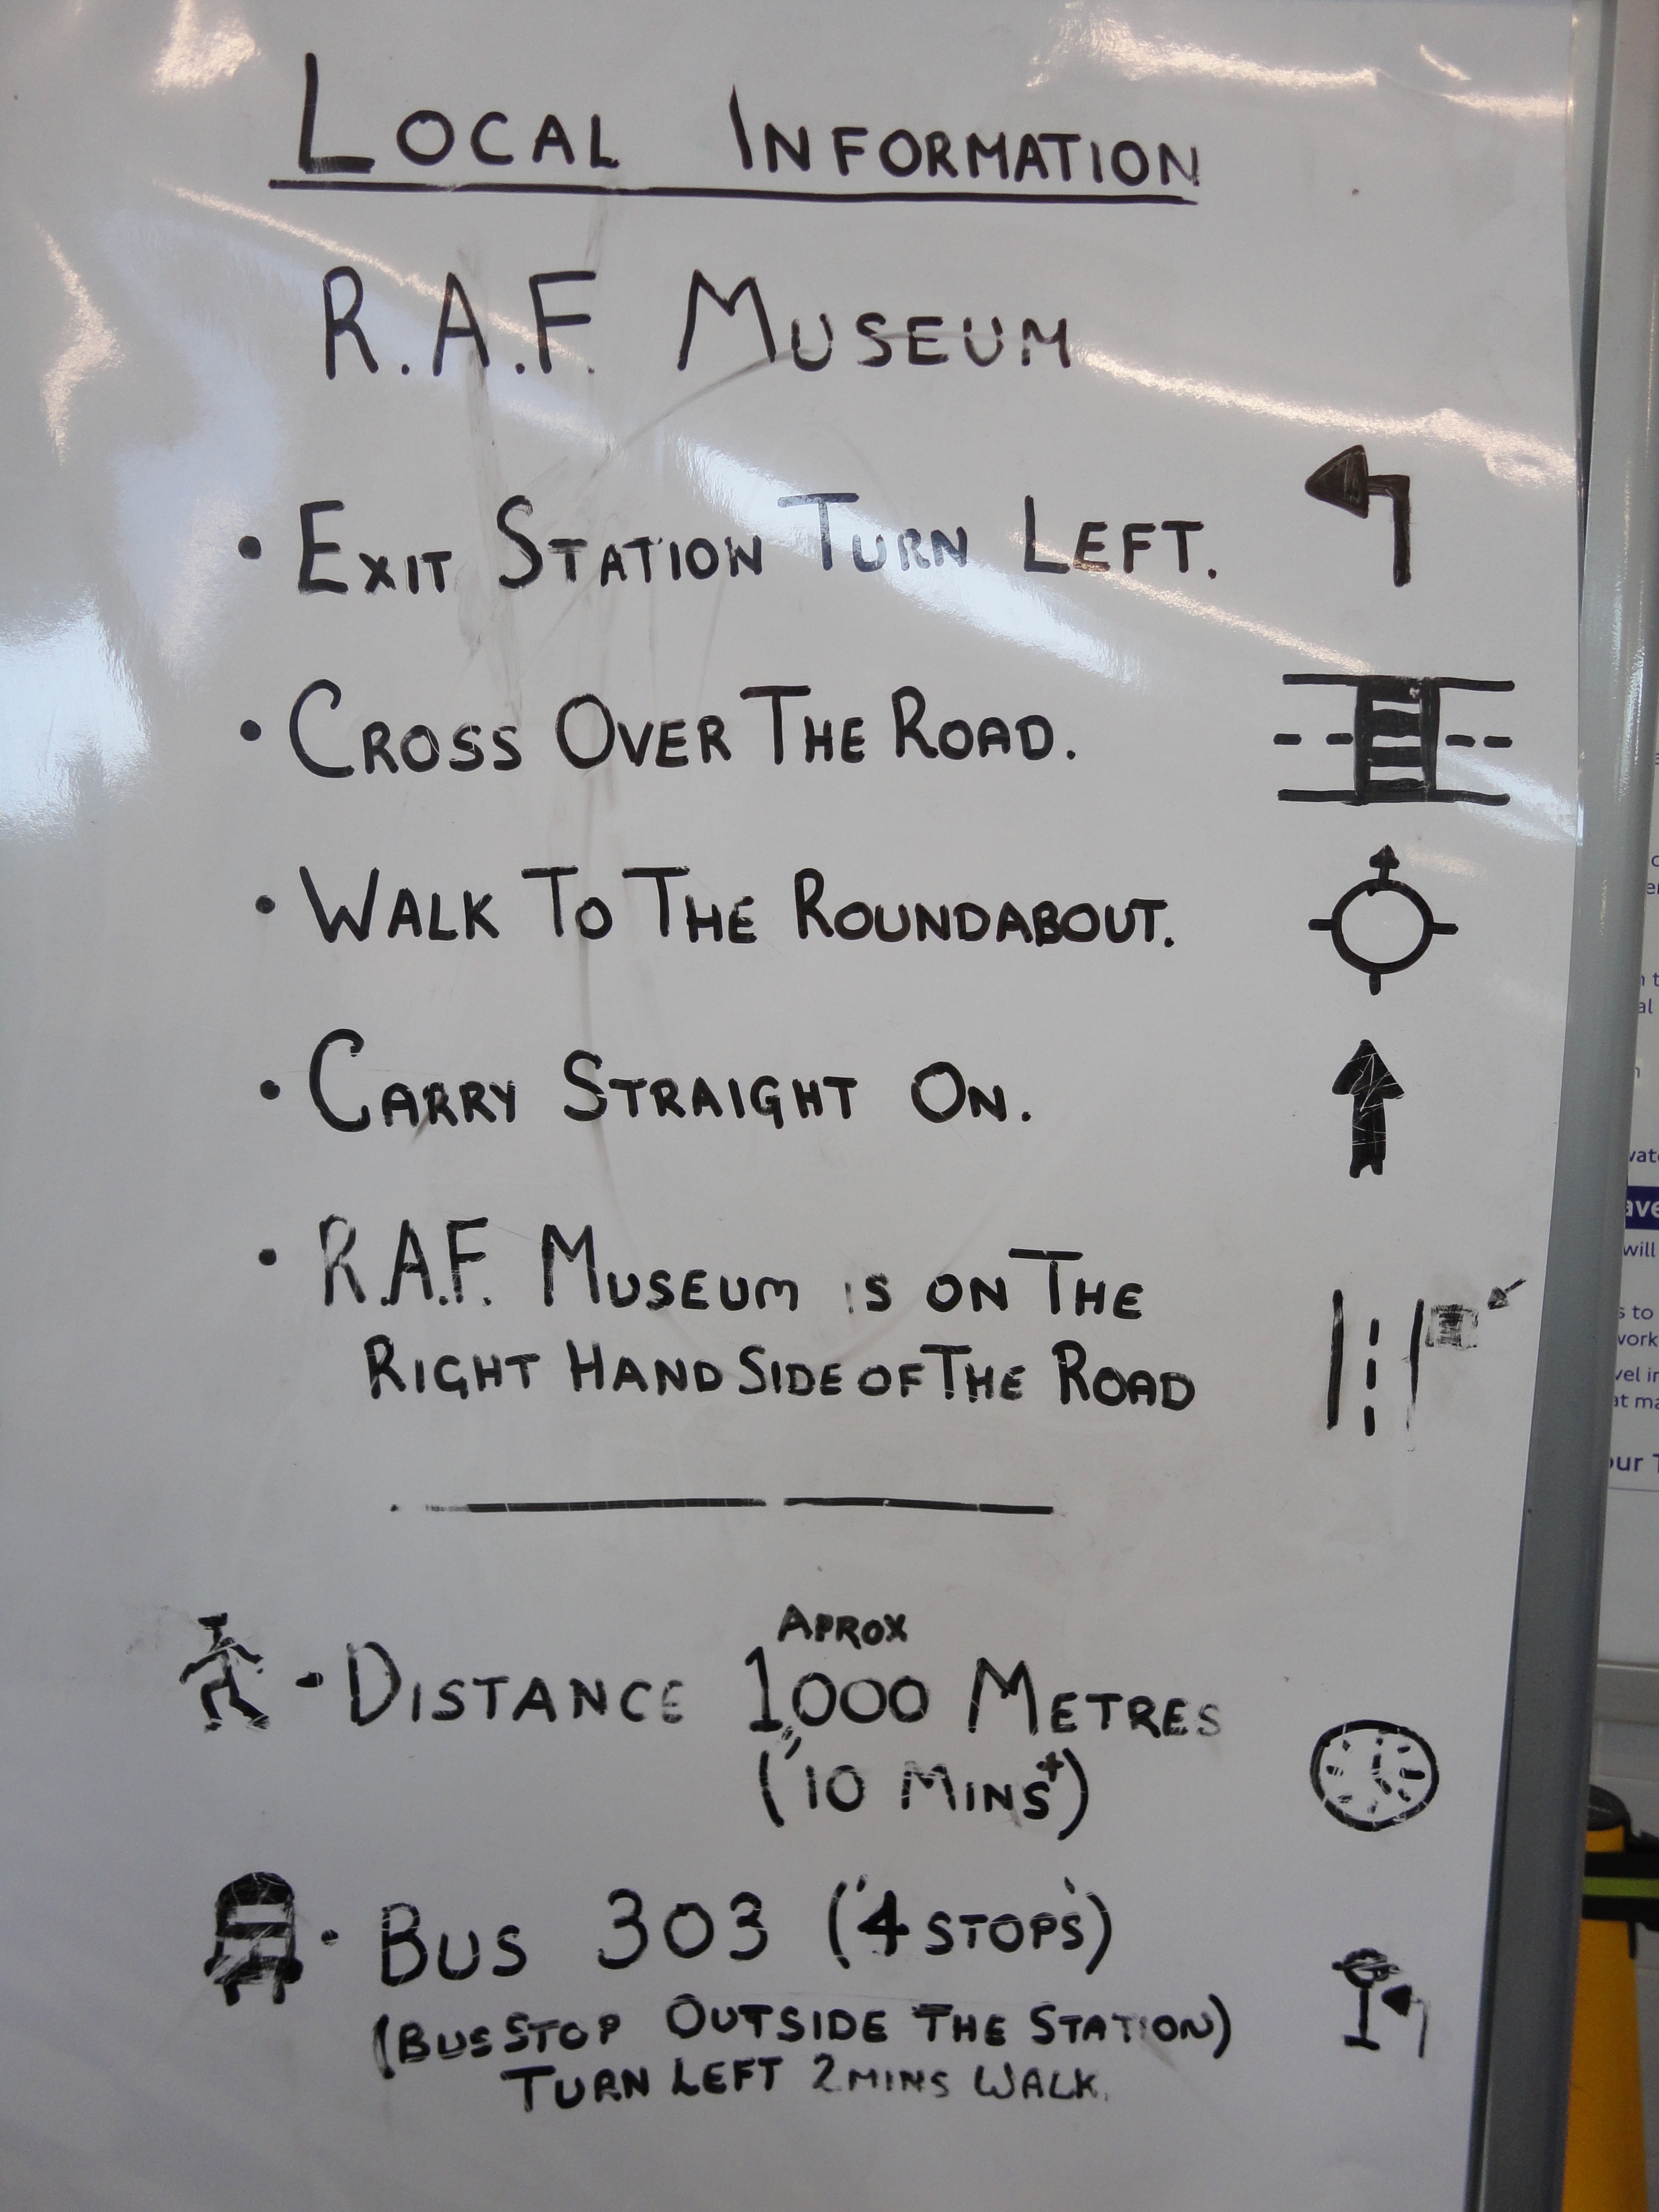 LOCAL INFORMATION
R.A.F. MUSEUM
• EXIT STATION TURN LEFT.
• CROSS OVER THE ROAD.
• WALK TO THE ROUNDABOUT.
• CARRY STRAIGHT ON.
• R.A.F. MUSEUM IS ON THE
RIGHT HAND SIDE OF THE ROAD
APROX
• DISTANCE 1,000 METRES
('10 MINS+)
• BUS 303 ('4 STOPS')
(BUS STOP OUTSIDE THE STATION)
TURN LEFT 2 MINS WALK.
will